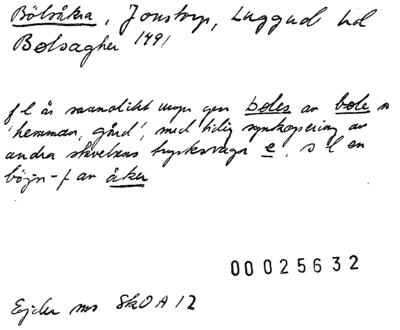 Bölsåkra, Jonstorp, Luggud hd
Bolsagher 1491
f l är sannolikt ungn gen boles av bole n
'hemman, gård', med tidig synkopering av
andra stavelsens trycksvaga e. s l en
böjn-f av åker
00025632
Ejder ms SkOA 12